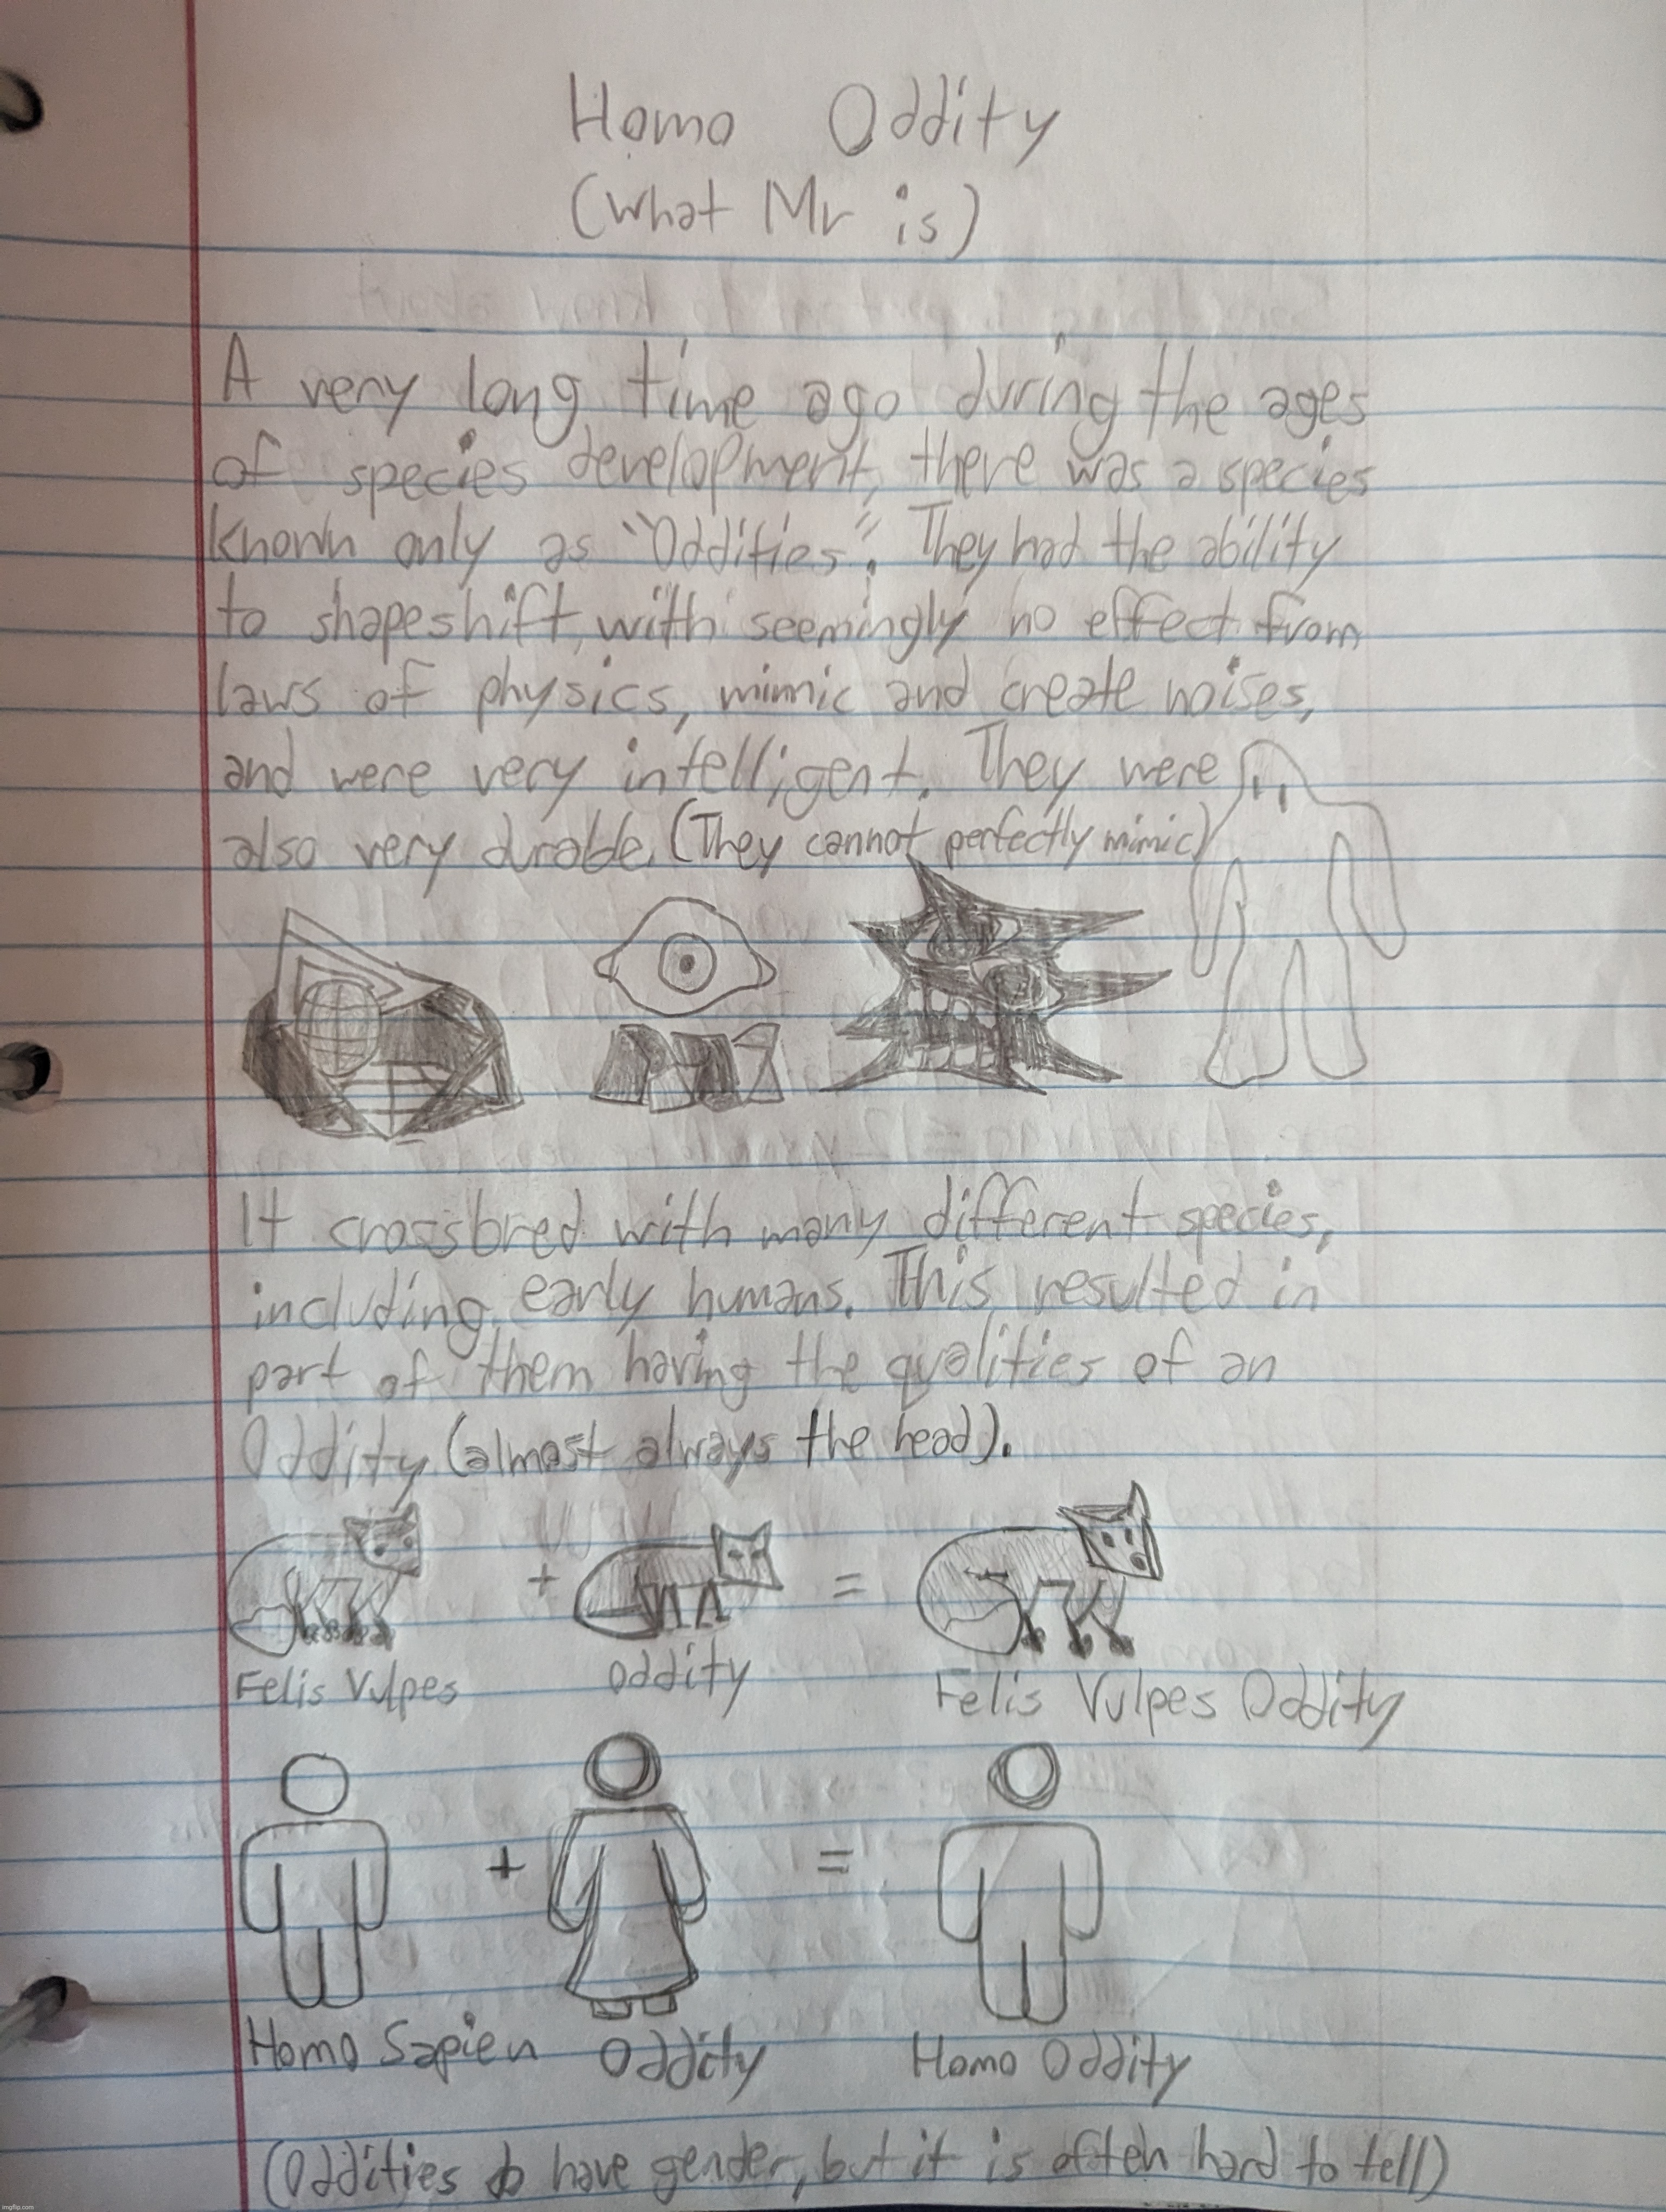 Homo Oddity
(What Mr is)
A very long time ago during the ages
of species development, there was a species
known only as "Oddities". They had the ability
to shapeshift, with seemingly no effect from
laws of physics, mimic and create noises,
and were very intelligent. They were
also very durable. (They cannot perfectly mimic)
It crossbred with many different species,
including early humans. This resulted in
part of them having the qualities of an
Oddity (almost always the head).
+ =
Felis Vulpes Oddity Felis Vulpes Oddity
+ =
Homo Sapien Oddity Homo Oddity
(Oddities do have gender, but it is often hard to tell)
imgflip.com